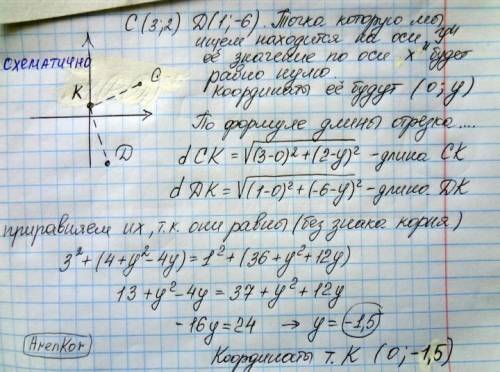 C (3; 2) D (1; -6). Точка которую мы
ищем находится на оси "y"
её значение по оси "x" будет
равно нулю.
Координаты её будут (0; y)
схематично
K
C
D
По формуле длины отрезка....
d CK = √(3-0)²+(2-y)² - длина CK
d DK = √(1-0)²+(-6-y)² - длина DK
приравняем их, т.к. они равны (без знака корня)
3²+(4+y²-4y)=1²+(36+y²+12y)
13+y²-4y=37+y²+12y
-16y=24 → y=-1,5
ArenKor
Координаты т. K (0; -1,5)